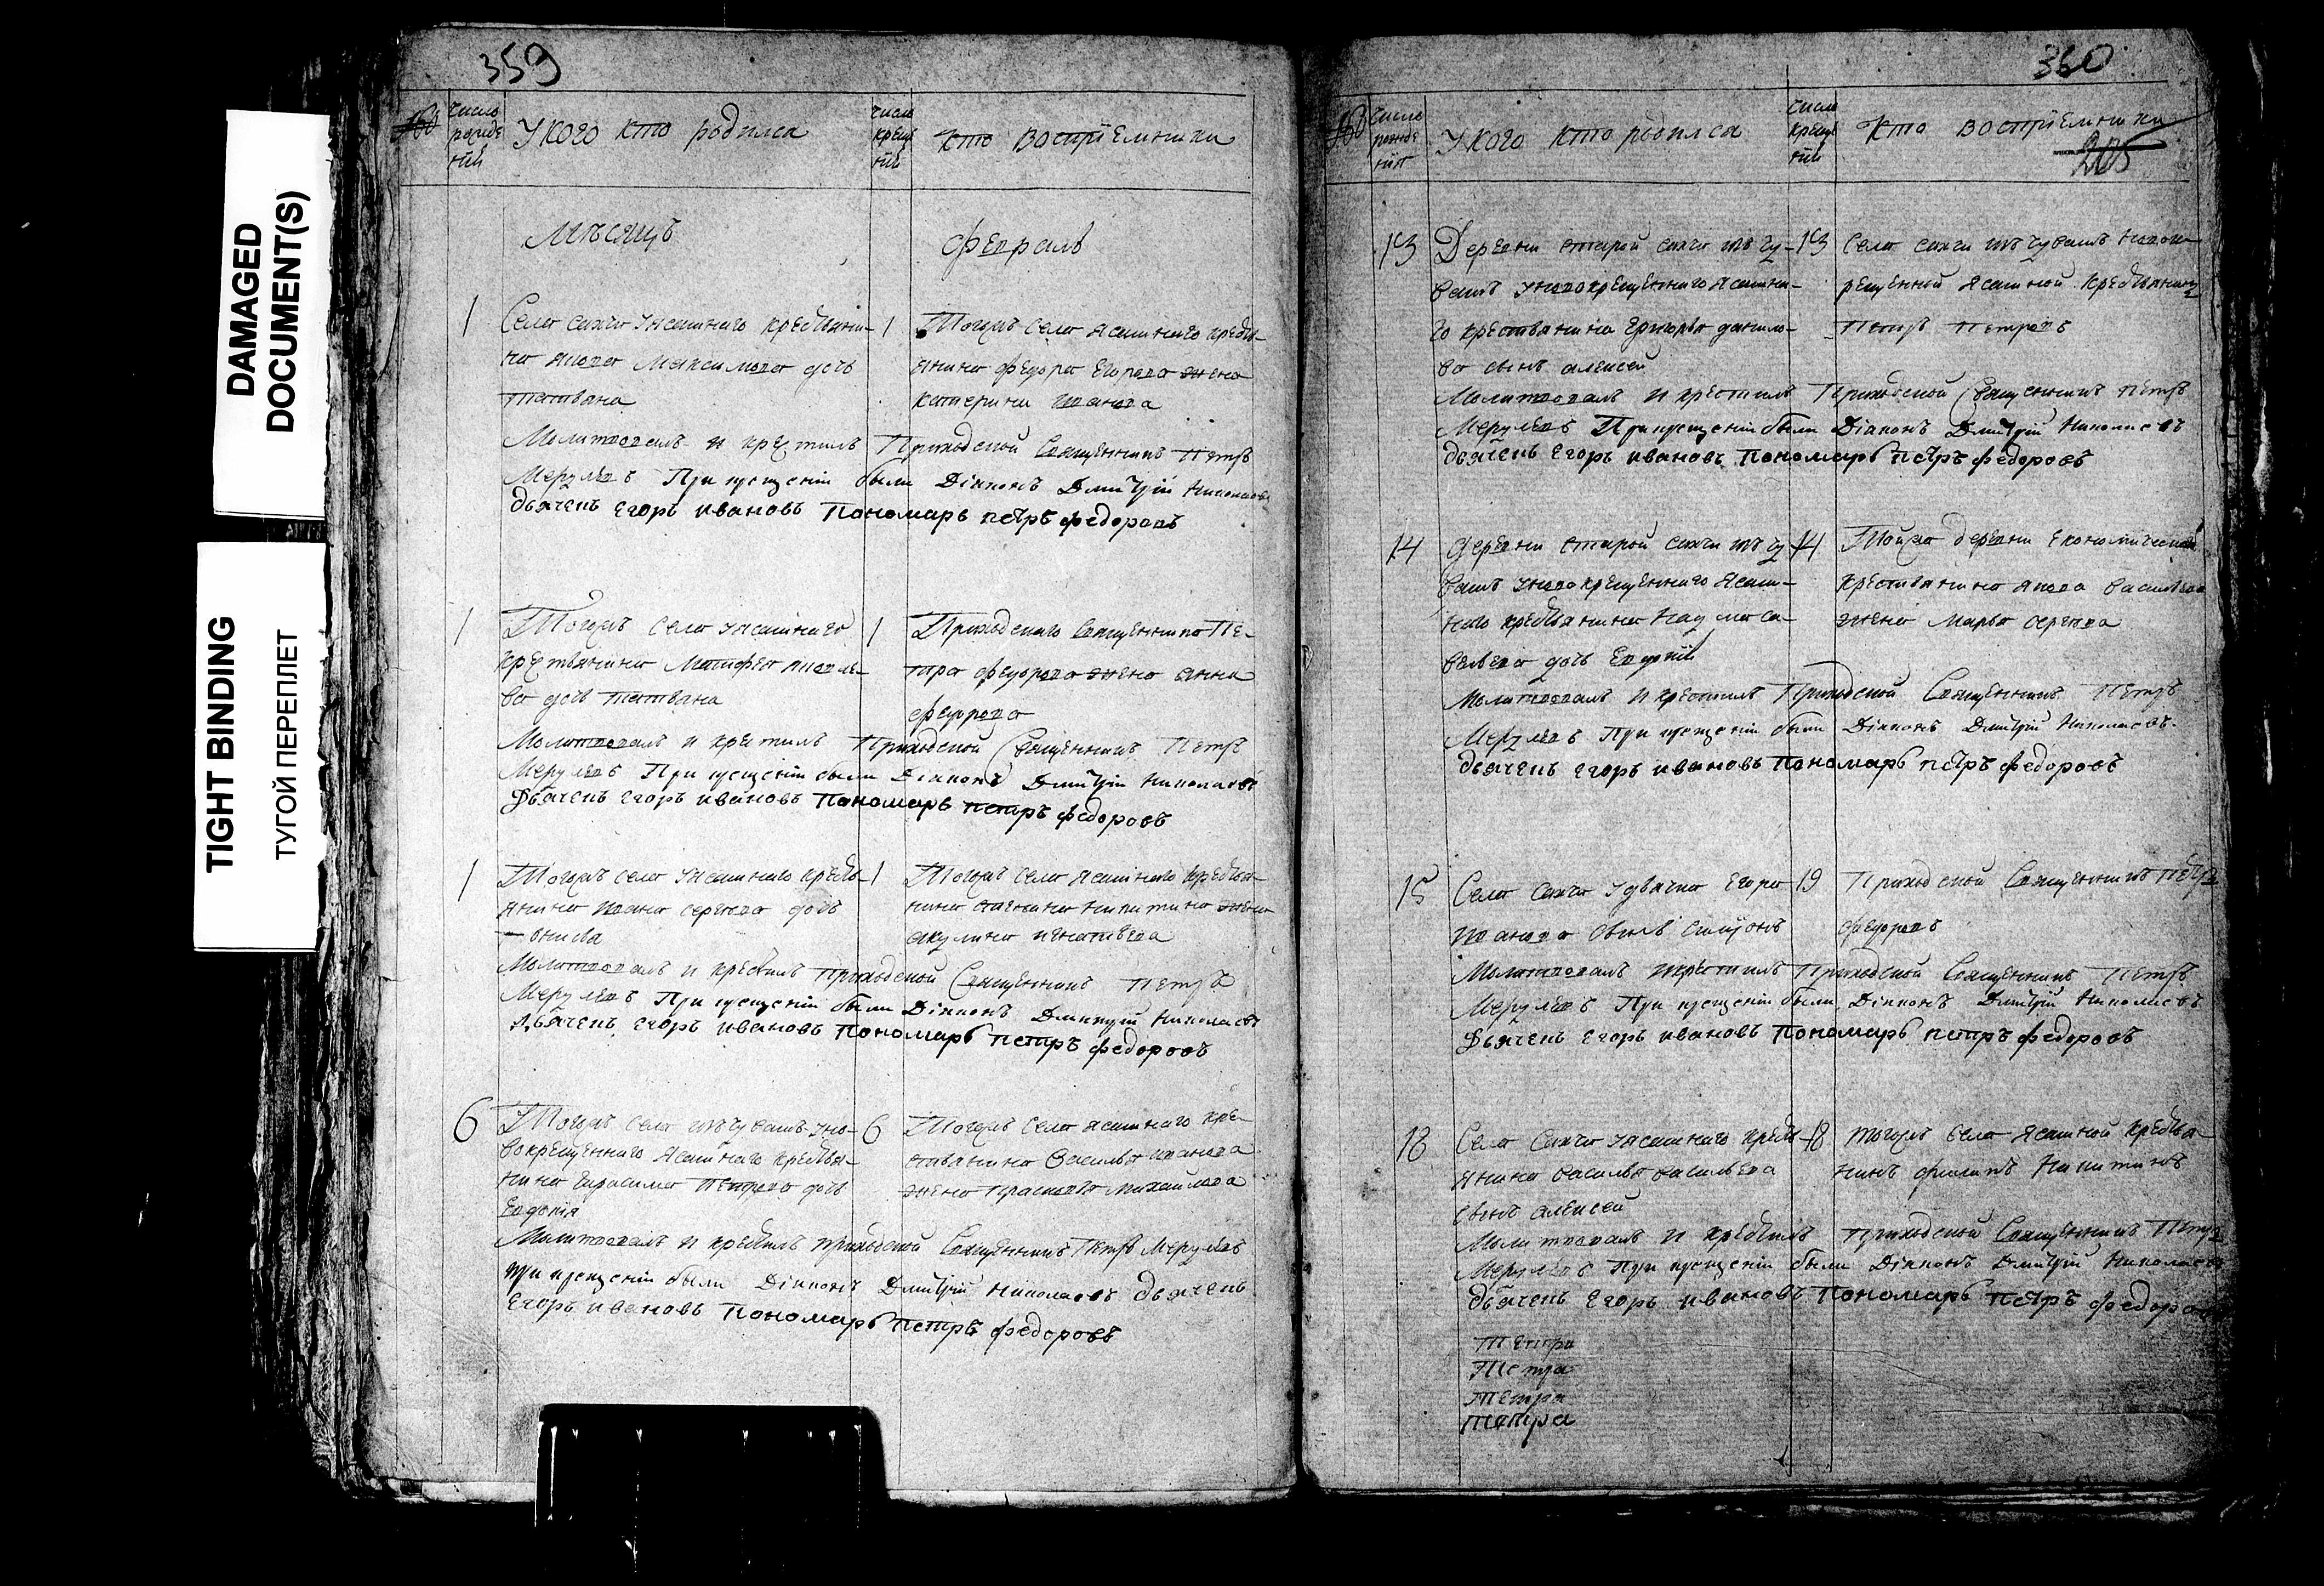 DAMAGED
DOCUMENT(S)
TIGHT BINDING
ТУГОЙ ПЕРЕПЛЕТ
359
число
рожде
нїй
У кого кто родился
число
крещ
нїй
кто воспрїемники
Мѣсяцъ
февраль
1
Села сахчи у ясашнаго крестьяни-
на якова Максимова дочь
татьяна
1
Тогожъ села ясашнаго кресть-
янина федора Егорова жена
катерина иванова
Молитвовалъ и крестилъ Приходской Священникъ Петръ
Меркульевъ При крещенїи были Дїаконъ Дмитрїй Николаевъ
дьячекъ Егоръ ивановъ Пономарь петръ федоровъ
1
Тогожъ села у ясашнаго
крестьянина Матфея яковле-
ва дочь татьяна
1
Приходскаго священника Пе-
тра федорова жена анна
федорова
Молитвовалъ и крестилъ Приходской Священникъ Петръ
При крещенїи были Дїаконъ Дмитрїй Николаевъ
Дьячекъ Егоръ ивановъ Пономарь петръ федоровъ
1
Тогожъ села у ясашнаго кресть-
янина ивана сергеева дочь
1
Тогожъ села ясашнаго крестья-
нина никитина жена
акулина игнатьева
Молитвовалъ и крестилъ приходской Священникъ Петръ
При крещенїи были Дїаконъ Дмитрїй Николаевъ
Дьячекъ Егоръ ивановъ Пономарь петръ федоровъ
6
Тогожъ села изъ чувашъ у но-
вокрещеннаго ясашнаго крестья-
нина герасима Петрова дочь
Евдокїя
6
Тогожъ села ясашнаго кре-
стьянина василья иванова
жена прасковья михайлова
Молитвовалъ и крестилъ приходской Священникъ Петръ
при крещенїи были Дїаконъ Дмитрїй Николаевъ дьячекъ
Егоръ ивановъ Пономарь петръ федоровъ
360
число
рожде
нїя
У кого кто родился
число
крещ
нїй
кто воспрїемники
205
13
Деревни старой сахчи изъ чу-
вашъ у новокрещеннаго ясашна-
го крестьянина григорья данило-
ва сынъ алексей
13
Села сахчи изъ чувашъ новок-
рещенной ясашной крестьянинъ
Петръ Петровъ
Молитвовалъ и крестилъ Приходской Священникъ Петръ
При крещенїи были Дїаконъ Дмитрїй Николаевъ
дьячекъ Егоръ ивановъ Пономарь петръ федоровъ
14
деревни старой сахчи изъ чу
вашъ у новокрещеннаго ясаш-
наго крестьянина наума са-
вельева дочь Евдокїя
14
Тойжа деревни економической
крестьянина якова васильева
жена марья сергеева
Молитвовалъ и крестилъ Приходской Священникъ Петръ
При крещенїи были Дїаконъ Дмитрїй Николаевъ
дьячекъ Егоръ ивановъ Пономарь петръ федоровъ
15
Села Сахчи у дьячка Егора
иванова сынъ симїонъ
19
Приходской Священникъ Петръ
федоровъ
Молитвовалъ и крестилъ Приходской Священникъ Петръ
При крещенїи были Дїаконъ Дмитрїй Николаевъ
Дьячекъ Егоръ ивановъ Пономарь петръ федоровъ
18
Села Сахчи у ясашнаго кресть-
янина василья васильева
сынъ алексей
18
тогожъ села ясашной крестья-
нинъ филипъ Никитинъ
Молитвовалъ и крестилъ приходской Священникъ Петръ
При крещенїи были Дїаконъ Дмитрїй Николаевъ
дьячекъ Егоръ ивановъ Пономарь петръ федоровъ